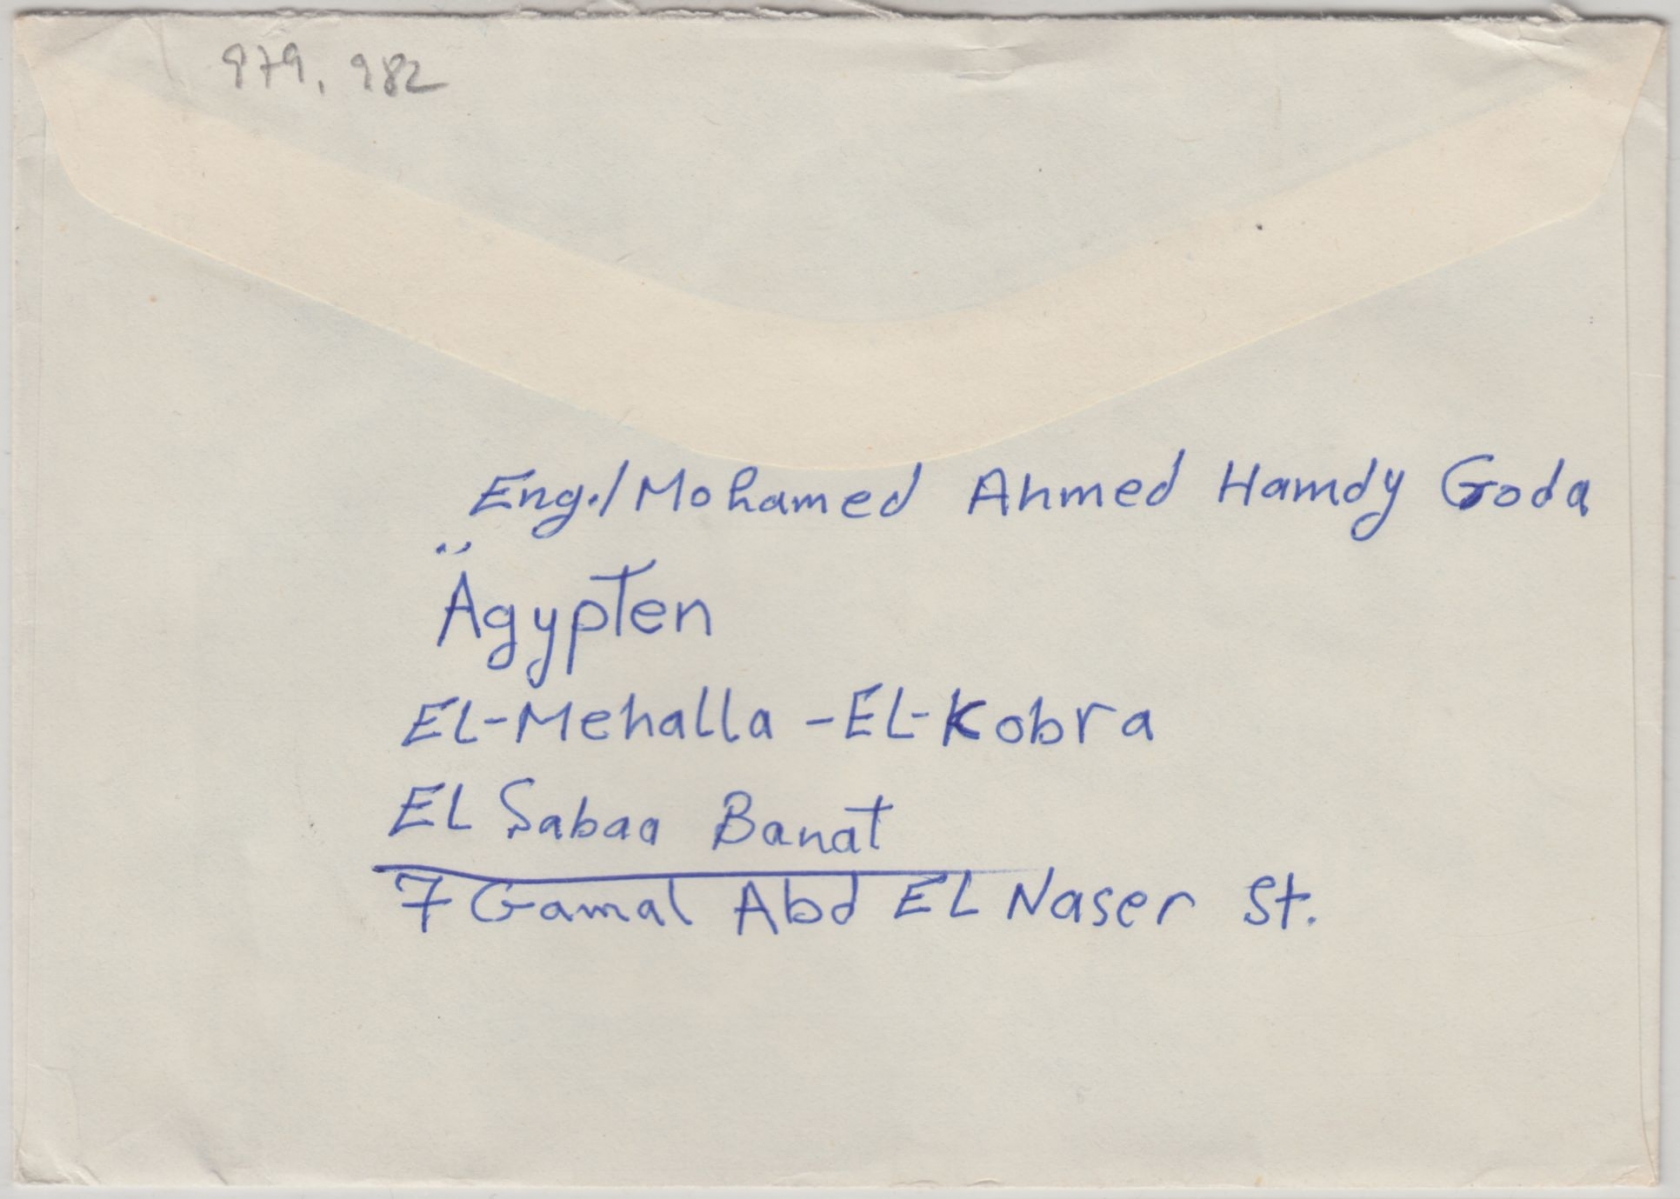 979, 982
Eng./Mohamed Ahmed Hamdy Goda
Ägypten
EL-Mehalla-EL-Kobra
EL Sabaa Banat
7 Gamal Abd EL Naser St.